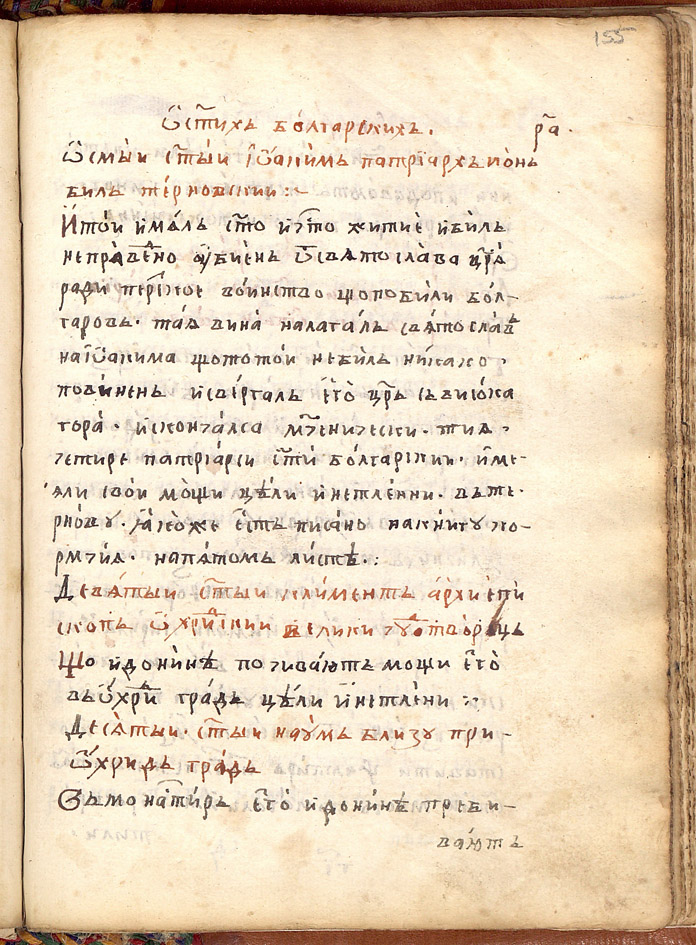 155
Ѡ с҃тихъ болгарскихъ.
р҃а.
Ѡсмыи с҃тыи Іѡакимъ патріархъ и онъ
билъ терновскии:~
И той ималъ с҃то и ч҃то житие и билъ
неправедⷩ҇о ꙋбиенъ ѿ святослава цр҃а
ради перское воинство що побили бол-
гаровъ. таа вина налагалъ святославъ
на Іѡакима що тогои небилъ никако
повиненъ и свергалъ ег҃о цр҃ь съ висока
гора. и скончалса мч҃енически. тиа
четире патріарси с҃ти болгарскии. име-
яли свои мощи цѣли и нетлѣнни. въ те-
рновꙋ. ꙗкоже ес҃ть писано на книгꙋ ко-
рмчіа. на пятомъ листѣ.:
Девятыи с҃тыи климентъ архиепи
скопъ ѡхридⷭ҇кии велики чюдⷪ҇творецъ
Що и донинѣ почиваютъ мощи ег҃о
въ ѡхридⷣ градъ цѣли и нетлени:~
Десятыи. с҃тыи наꙋмъ близꙋ при-
ѡхридъ градъ
Въ монастиръ ег҃о и донинѣ преби-
ваютъ